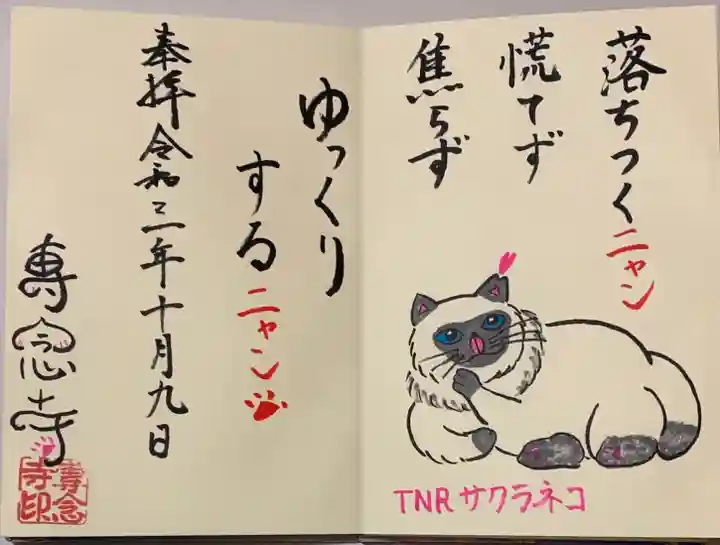 落ちつくニャン
慌てず
焦らず
TNRサクラネコ
ゆっくり
するニャン
奉拝 令和三年十月九日
専念寺
専念
寺印